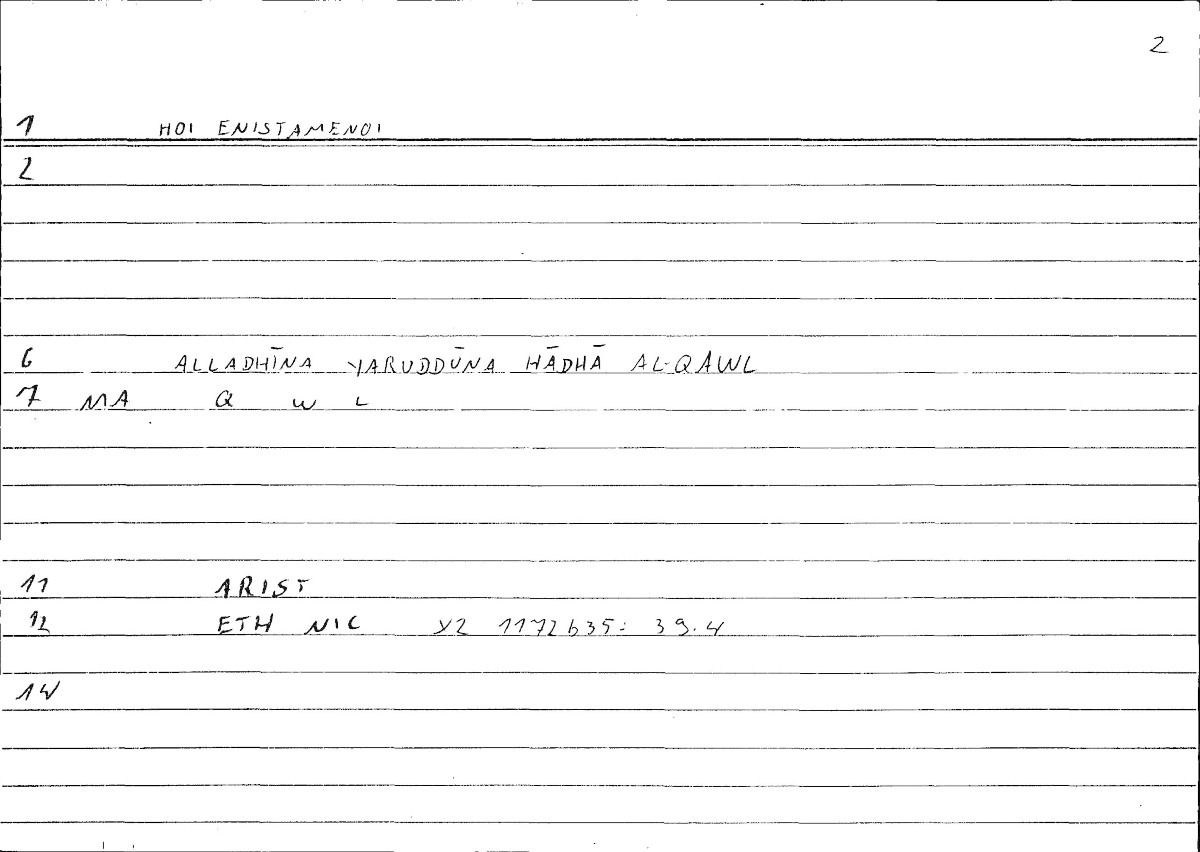 2
1 HOI ENISTAMENOI
2
6 ALLADHĪNA YARUDDŪNA HĀDHĀ AL-QAWL
7 MA Q W L
11 ARIST
12 ETH NIC Y2 1172b35: 39.4
14